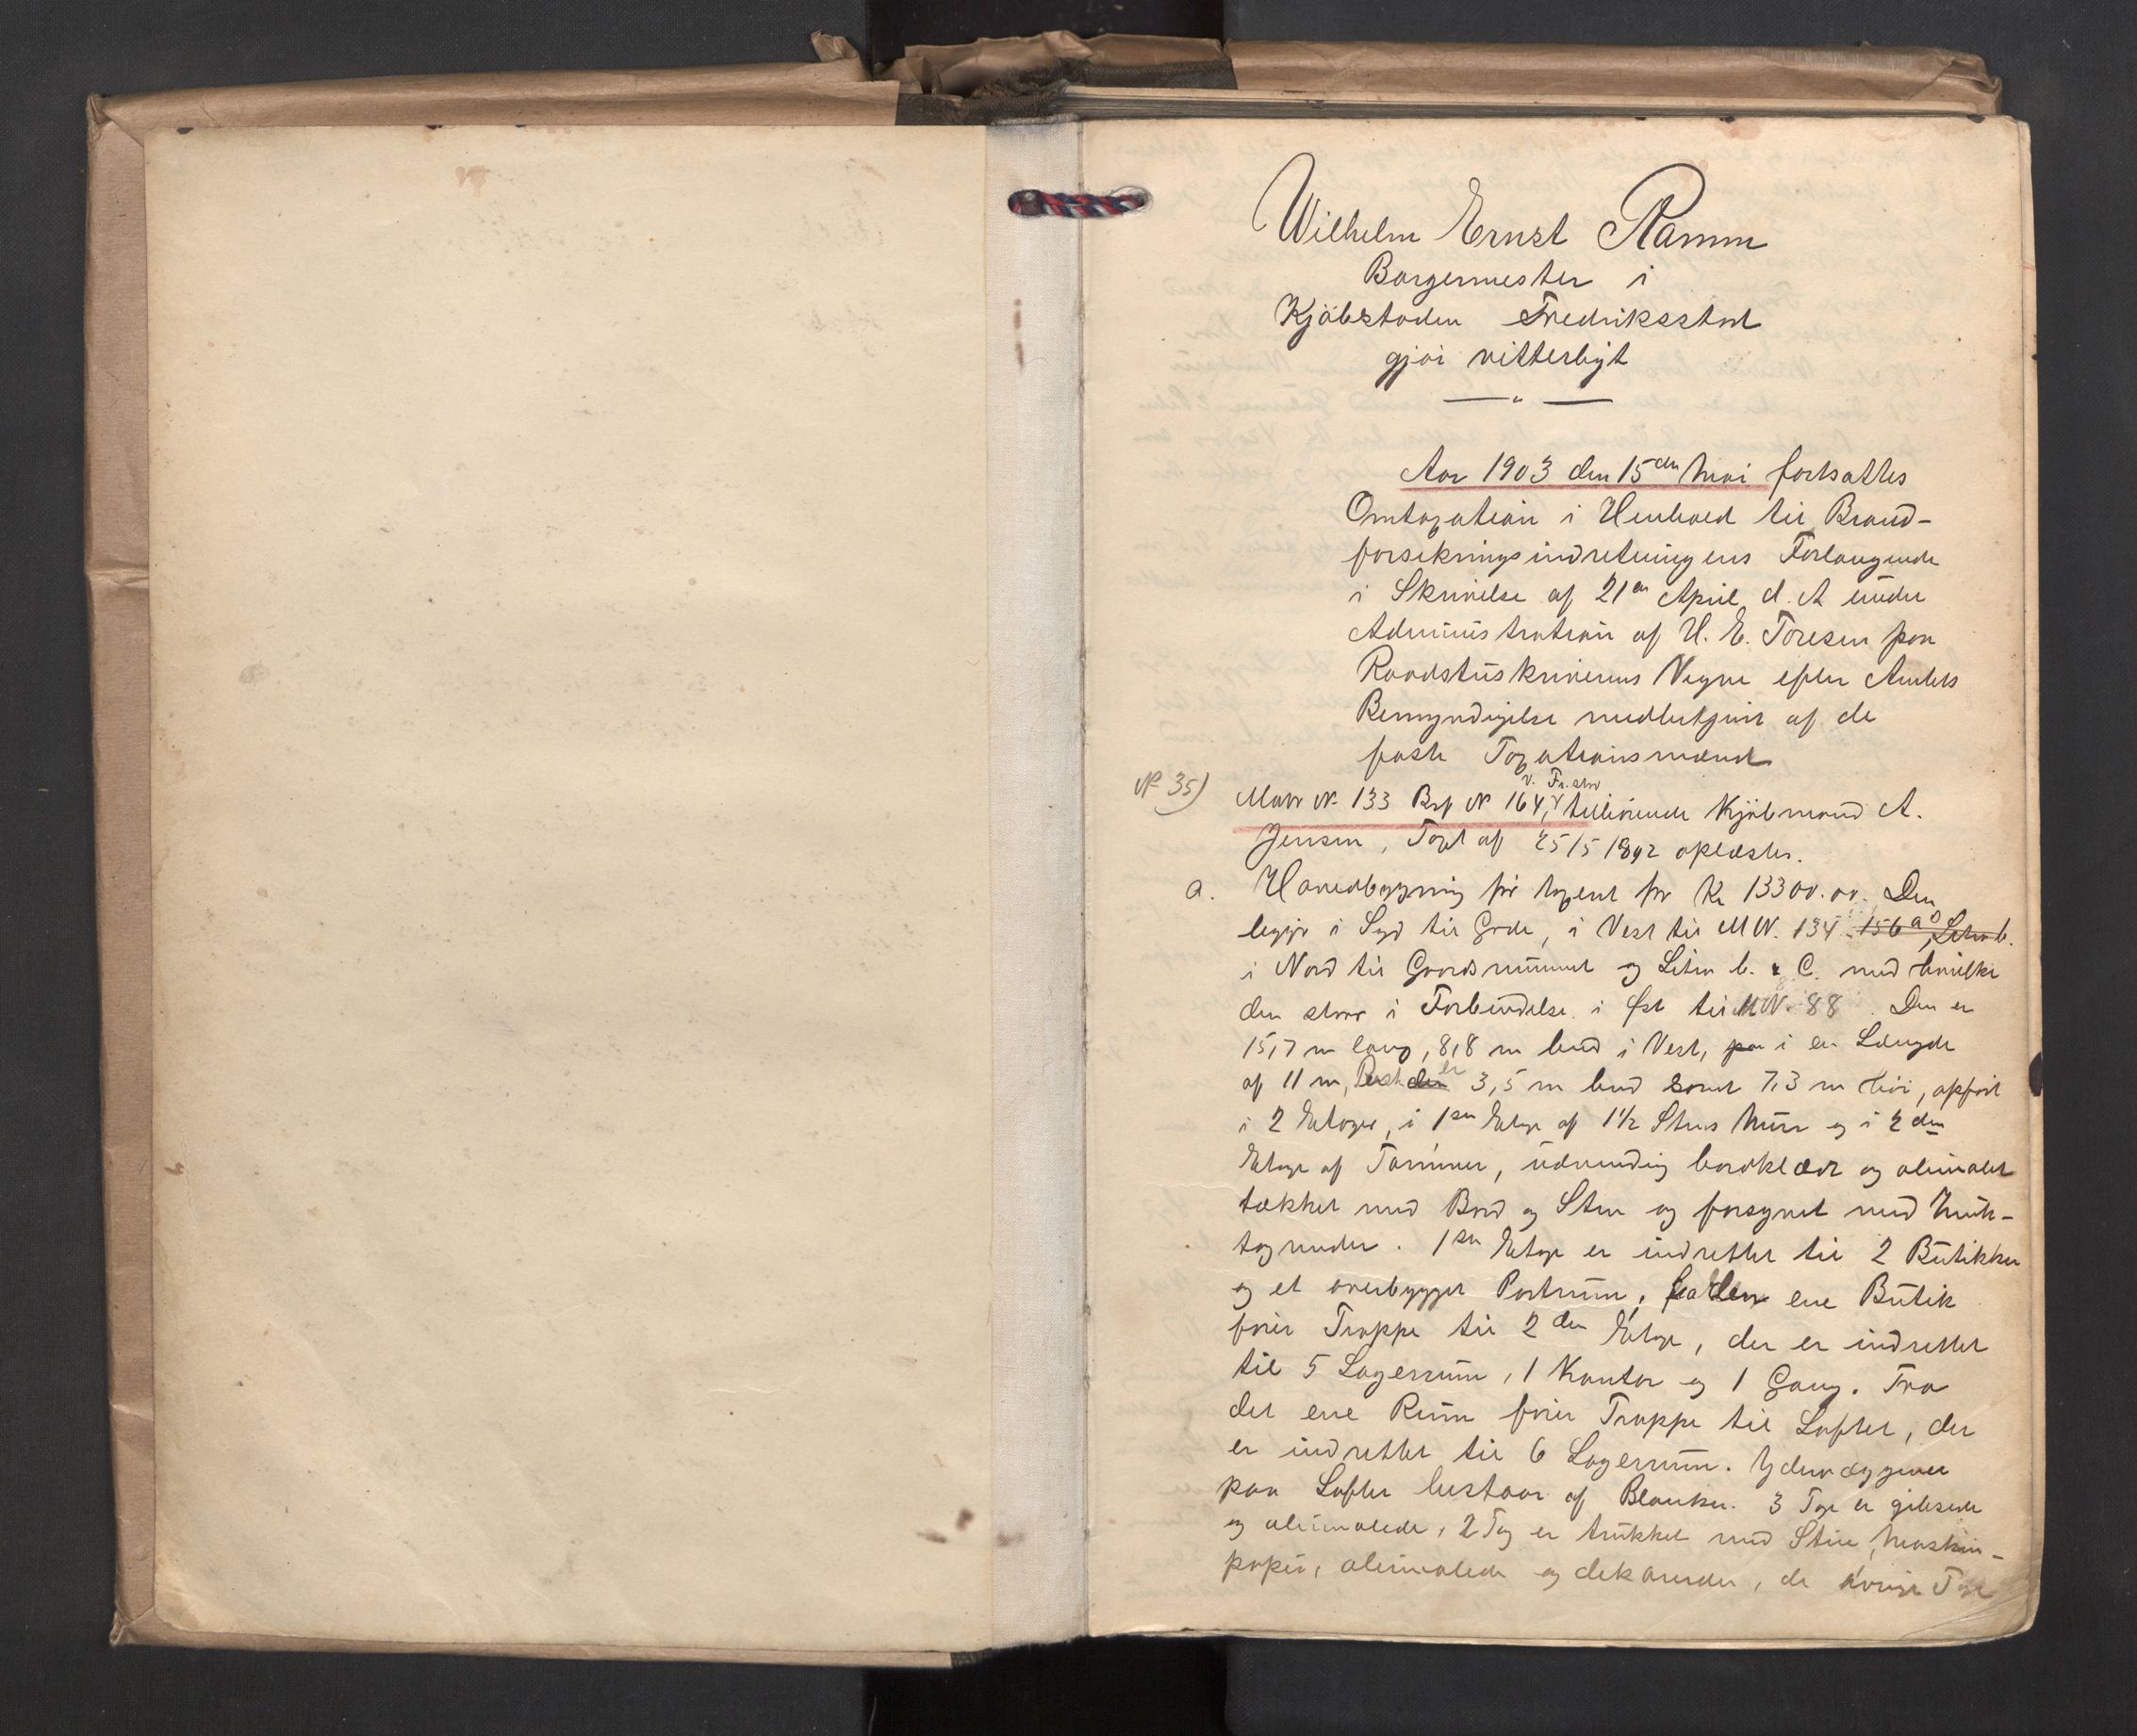 Wilhelm Ernst Ramm
Borgermester i
Kjöbstaden Fredriksstad
gjør vitterligt
Aar 1903 den 15den Mai fortsattes
Omtaxation i Henhold til Brand-
forsikringsindretningens Forlangende
i Skrivelse af 21de April d. A under
Administration af H. E. Toresen paa
Raadstuskriverens Vegne efter Amtets
Bemyndigelse med
faste Taxationsmænd
No 35)
v. Fr.stad
Matr N. 133 Brf N 164, tilhørende Kjöbmand A.
Jensen, Taxt af 25/5 1892 oplæstes.
a. Hovedbygning før taxeret for Kr 13300.00. Den
ligger i Syd til Gade, i Vest til M N. 134 156 a, Litra b.
i Nord til Gaardsrummet og Litra b. & C. med hvilke
den staar i Forbindelse i Øst til M N. 88. Den er
15,7 m lang, 8,8 m bred i Vest, paa i en Længde
af 11 m, Rest den er 3,5 m bred samt 7,3 m høi, opført
i 2 Etager, i 1ste Etage af 1½ Stens Mur og i 2den
Etage af Tømmer, udvendig bordklædt og oliemalet
tækket med Bord og Sten og forsynet med Murh-
tagrender. 1ste Etage er indrettet til 2 Butikker
og et overbygget Portrum, fra den ene Butik
fører Trappe til 2den Etage, der er indrettet
til 5 Lagerrum, 1 Kontor og 1 Gang. Fra
det ene Rum fører Trappe til Loftet, der
er indrettet til 6 Lagerrum. Ydervæggene
paa Loftet bestaar af Planker. 3 Tage er gibsede
og oliemalede, 2 Tag er trukket med Strie, Maskin-
papir, oliemalede og dekorerede, de øvrige Tage